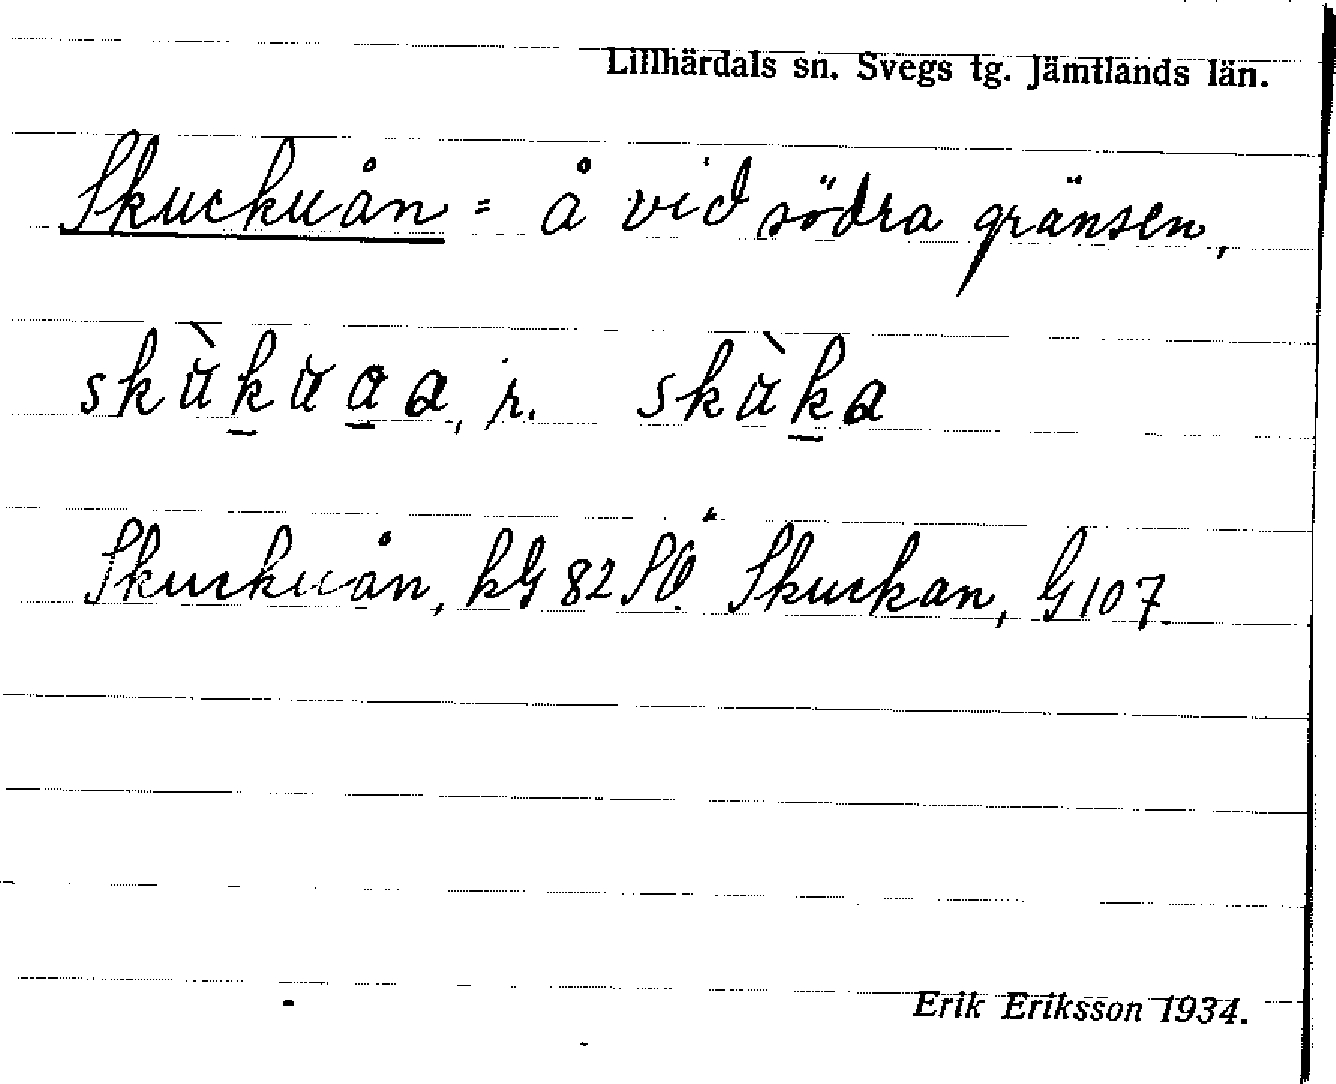 Lillhärdals sn. Svegs tg. Jämtlands län.
Skuckuån = å vid södra gränsen,
skùku a a, r. skùka
Skuckuån, kG 82 SV. Skuckan, G 107
Erik Eriksson 1934.